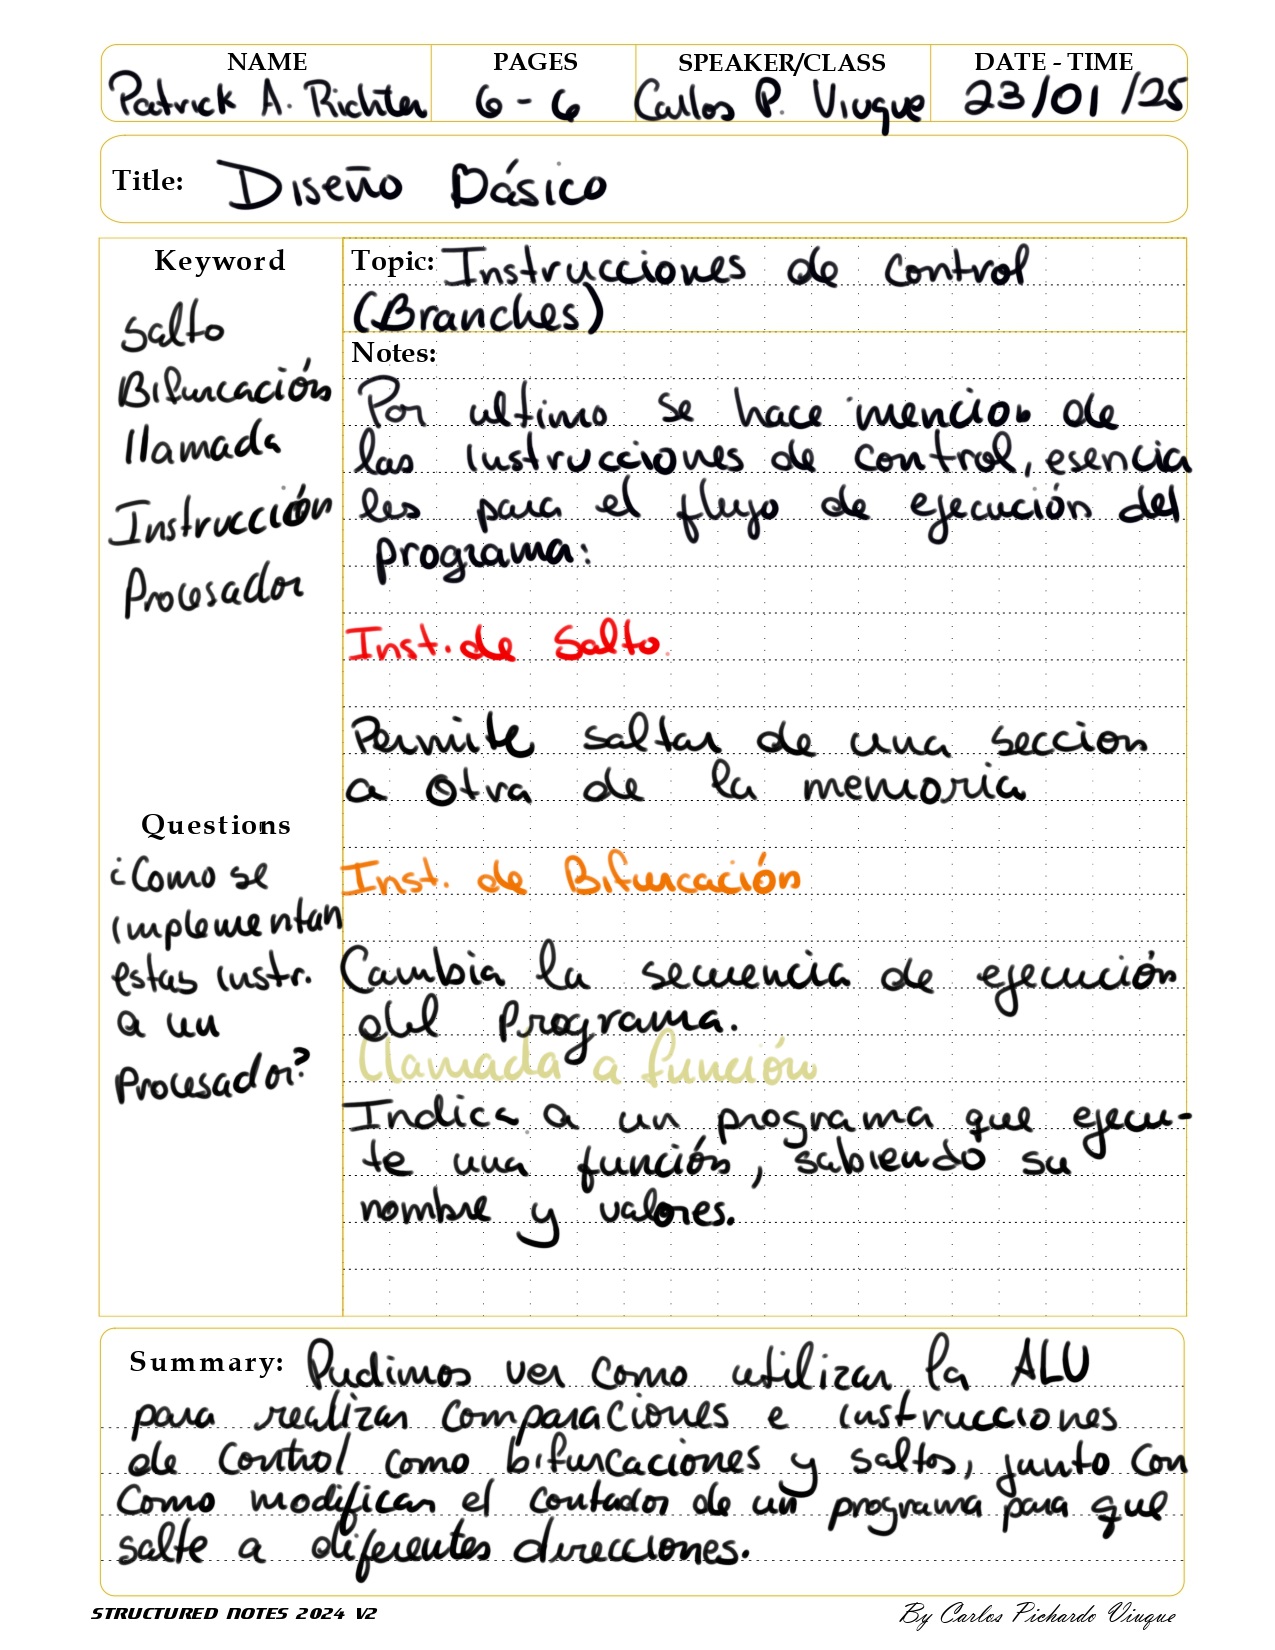 NAME PAGES SPEAKER/CLASS DATE - TIME
Patrick A. Richter 6 - 6 Carlos P. Viuque 23/01/25
Title: Diseño Básico
Keyword
Salto
Bifurcación
llamada
Instrucción
Procesador
Questions
¿Como se
implementan
estas instr.
a un
Procesador?
Topic: Instrucciones de control
(Branches)
Notes:
Por ultimo se hace mencion de
las instrucciones de control, esencia
les para el flujo de ejecución del
programa:
Inst. de Salto.
Permite saltar de una seccion
a otra de la memoria
Inst. de Bifurcación
Cambia la secuencia de ejecución
del Programa.
Llamada a función
Indica a un programa que ejecu-
te una función, sabiendo su
nombre y valores.
Summary: Pudimos ver como utilizar la ALU
para realizar comparaciones e instrucciones
de control como bifurcaciones y saltos, junto con
como modifican el contador de un programa para que
salte a diferentes direcciones.
STRUCTURED NOTES 2024 V2 By Carlos Pichardo Viuque